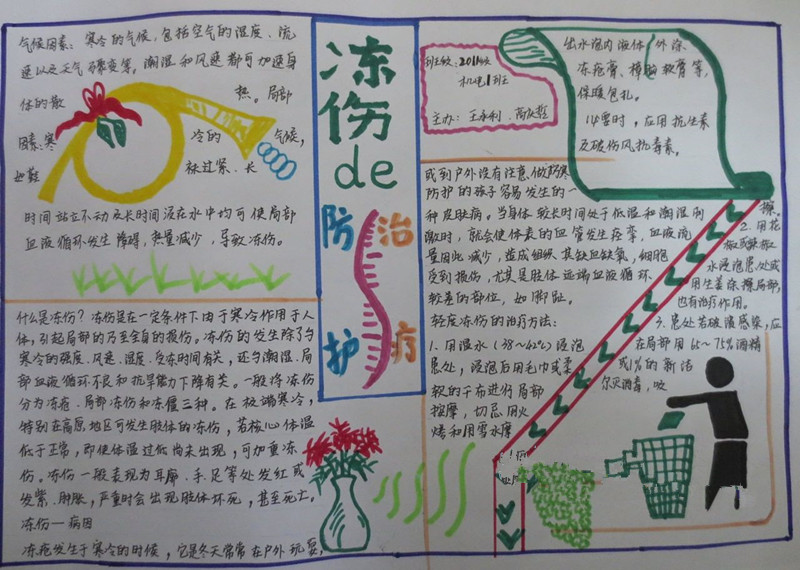 气候因素：寒冷的气候，包括空气的湿度、流
速以及天气骤变等。潮湿和风速都可加速身
体的散热。局部
因素：寒冷的气候，
如鞋袜过紧、长
时间站立不动及长时间浸在水中均可使局部
血液循环发生障碍，热量减少，导致冻伤。
什么是冻伤？冻伤是在一定条件下由于寒冷作用于人
体，引起局部的乃至全身的损伤。冻伤的发生除了与
寒冷的强度、风速、湿度、受冻时间有关，还与潮湿、局
部血液循环不良和抗寒能力下降有关。一般将冻伤
分为冻疮、局部冻伤和冻僵三种。在极端寒冷，
特别在高原地区可发生肢体的冻伤，若核心体温
低于正常，即使体温过低尚未出现，可加重冻
伤。冻伤一般表现为耳廓、手、足等处发红或
发紫、肿胀，严重时会出现肢体坏死，甚至死亡。
冻伤—病因
冻疮发生于寒冷的时候，它是冬天常常在户外玩耍，
冻伤
de
防治
护疗
班级：2014级
机电1班
主办：王永利
出水泡内液体，外涂
冻疮膏、樟脑软膏等，
保暖包扎。
必要时，应用抗生素
及破伤风抗毒素。
或到户外没有注意做防寒
防护的孩子容易发生的一
种皮肤病。当身体较长时间处于低温和潮湿刺
激时，就会使体表的血管发生痉挛，血液流
量因此减少，造成组织缺血缺氧，细胞
受到损伤，尤其是肢体远端血液循环
较差的部位，如脚趾。
轻度冻伤的治疗方法：
1.用温水（38～42℃）浸泡
患处，浸泡后用毛巾或柔
软的干布进行局部
按摩，切忌用火
烤和用雪水摩
擦。
2.用花
椒或辣椒
水浸泡患处或
用生姜涂擦局部，
也有治疗作用。
3.患处若破溃感染，应
在局部用65～75%酒精
或1%的新洁
尔灭消毒，吸